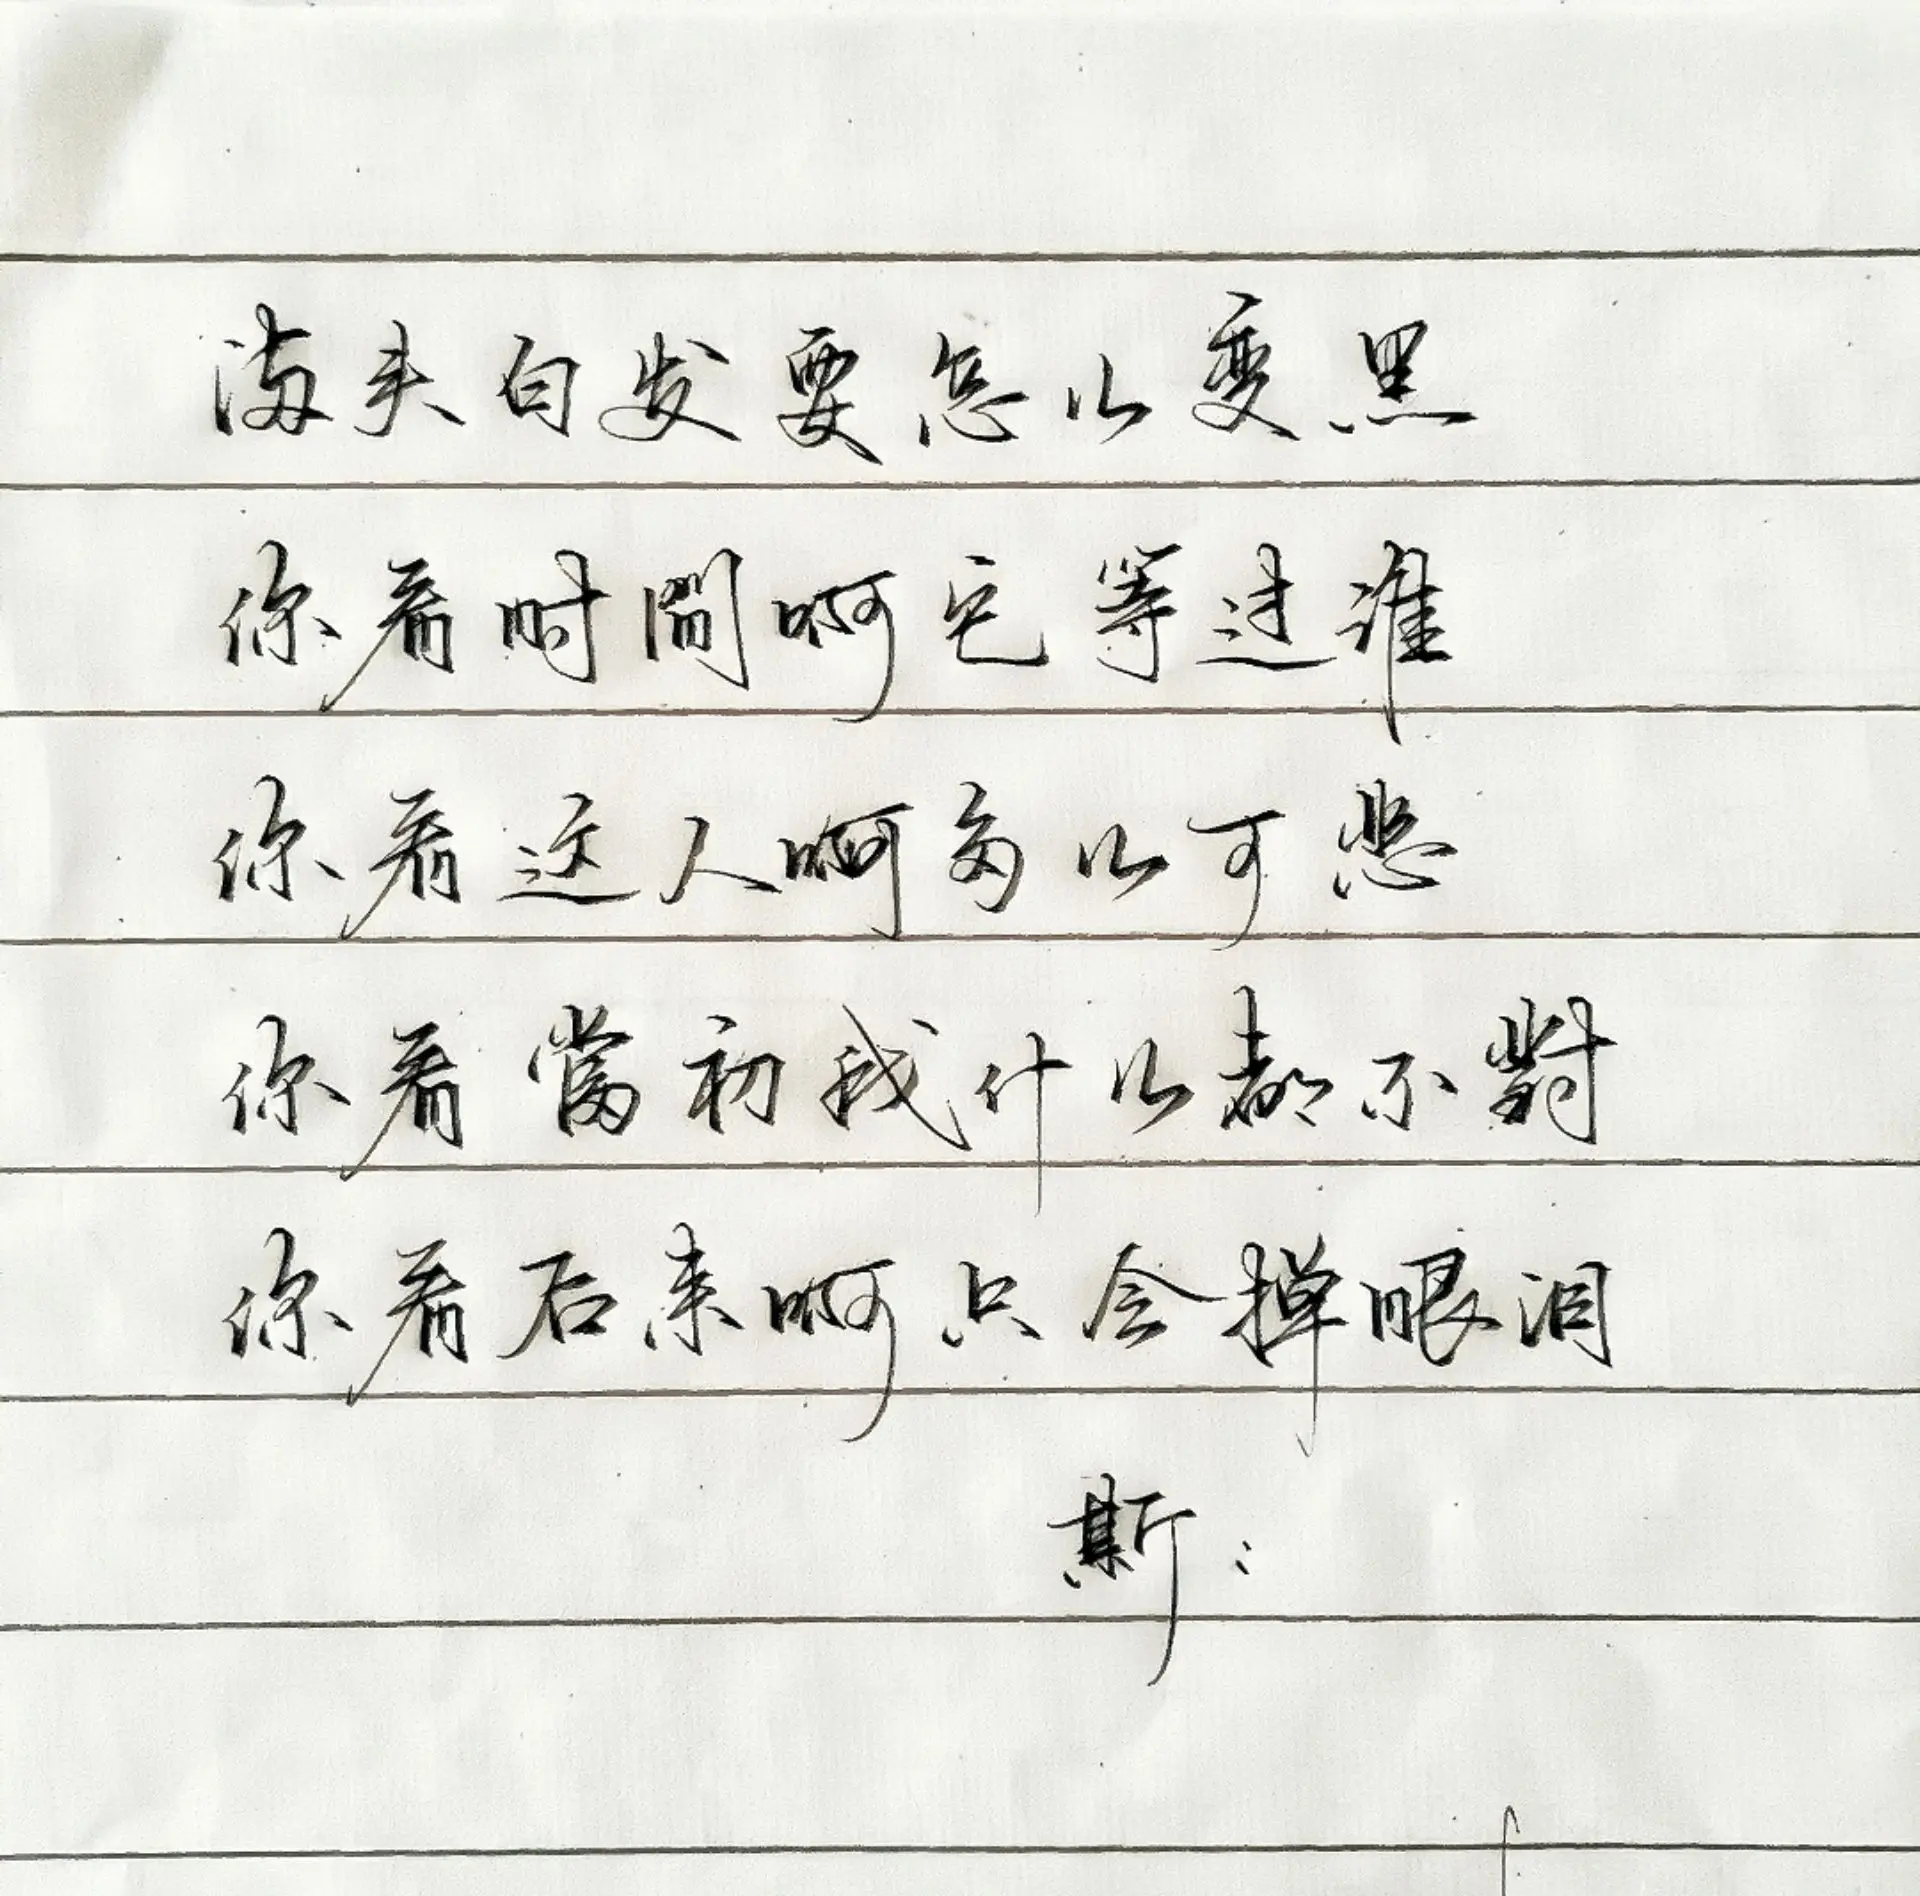 满头白发要怎么变黑
你看时間啊它等过谁
你看这人啊多么可恶
你看當初我什么都不對
你看后来啊只会掉眼泪
斯: